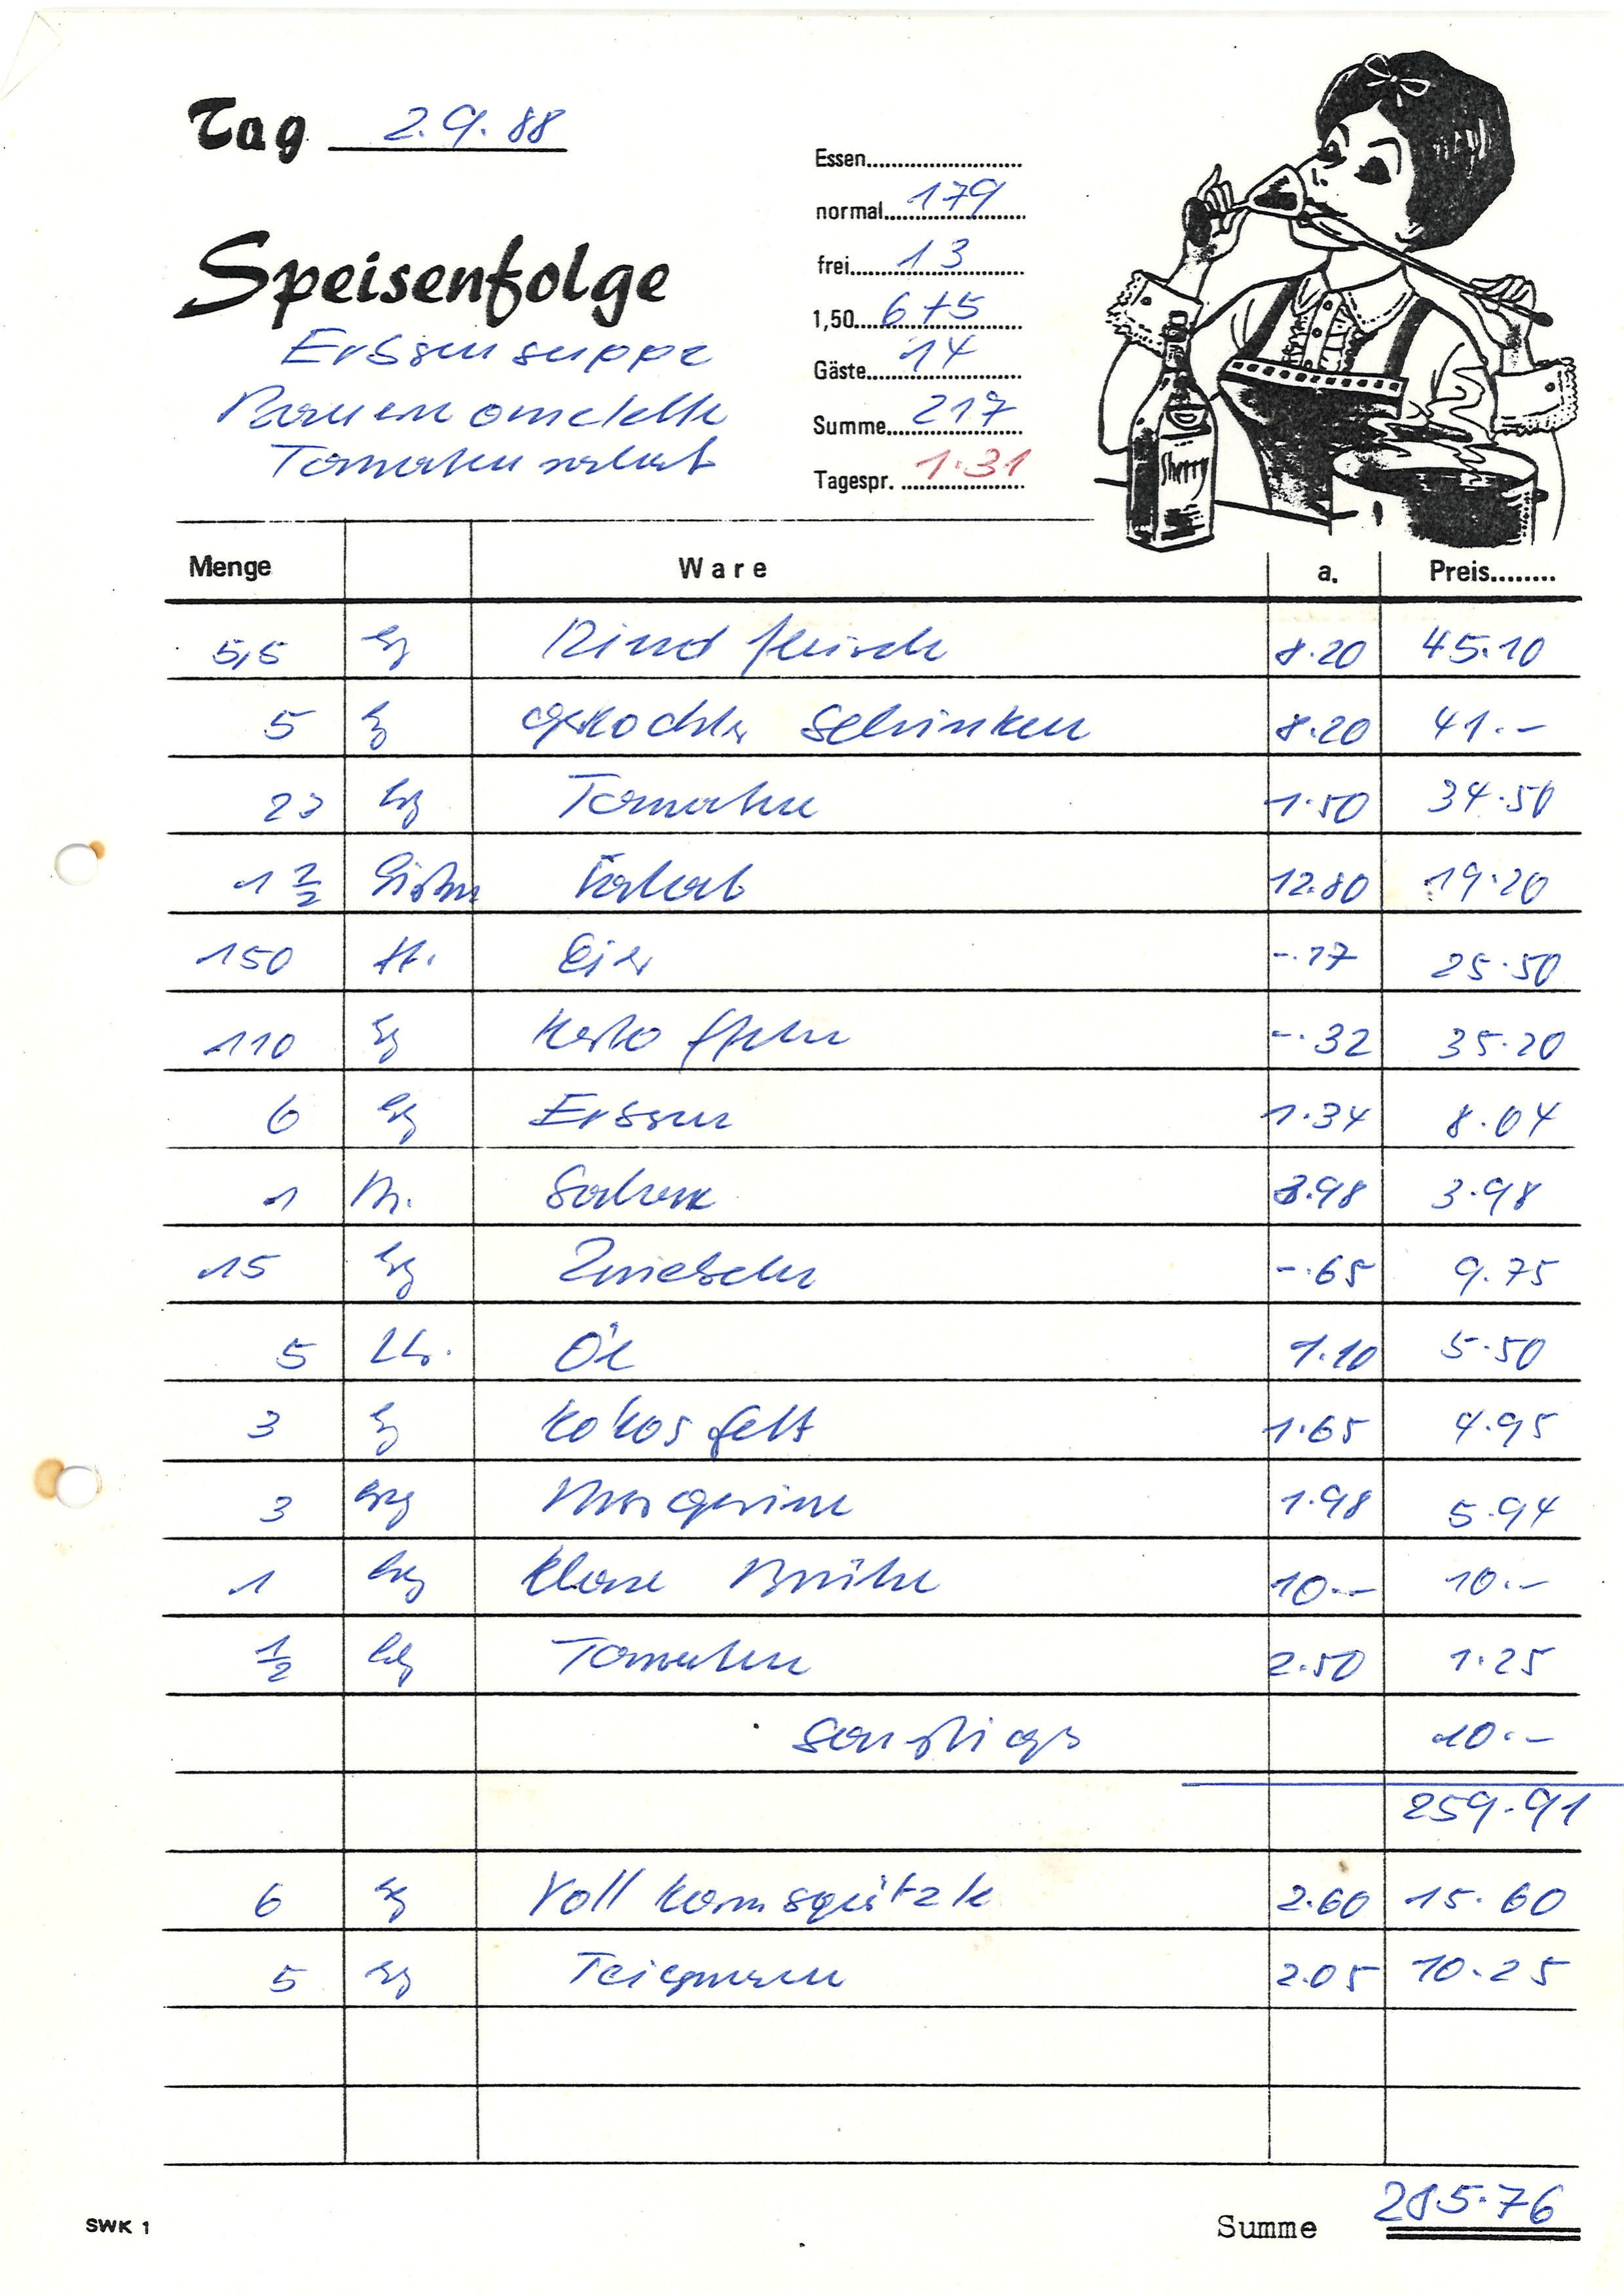 Tag 2.9.88
Essen........................
normal 179
Speisenfolge
frei 13
1,50 6+5
Erbsensuppe
Gäste 14
Bauernomelette
Summe 217
Tomatensalat
Tagespr. 1.31
Sherry
Menge Ware a. Preis........
5,5 kg Rindfleisch 8.20 45.10
5 kg gekochter Schinken 8.20 41.-
23 kg Tomaten 1.50 34.50
1 1/2 Kisten Salat 12.80 19.20
150 St. Eier -.17 25.50
110 kg Kartoffeln -.32 35.20
6 kg Erbsen 1.34 8.04
1 Sahne 3.98 3.98
15 kg Zwiebeln -.65 9.75
5 Ltr. Öl 1.10 5.50
3 kg Kokosfett 1.65 4.95
3 kg Margarine 1.98 5.94
1 kg Klare Brühe 10.- 10.-
1/2 kg Tomaten 2.50 1.25
Sonstiges 10.-
259.91
6 kg Vollkornspätzle 2.60 15.60
5 kg Teigwaren 2.05 10.25
SWK 1
Summe 285.76